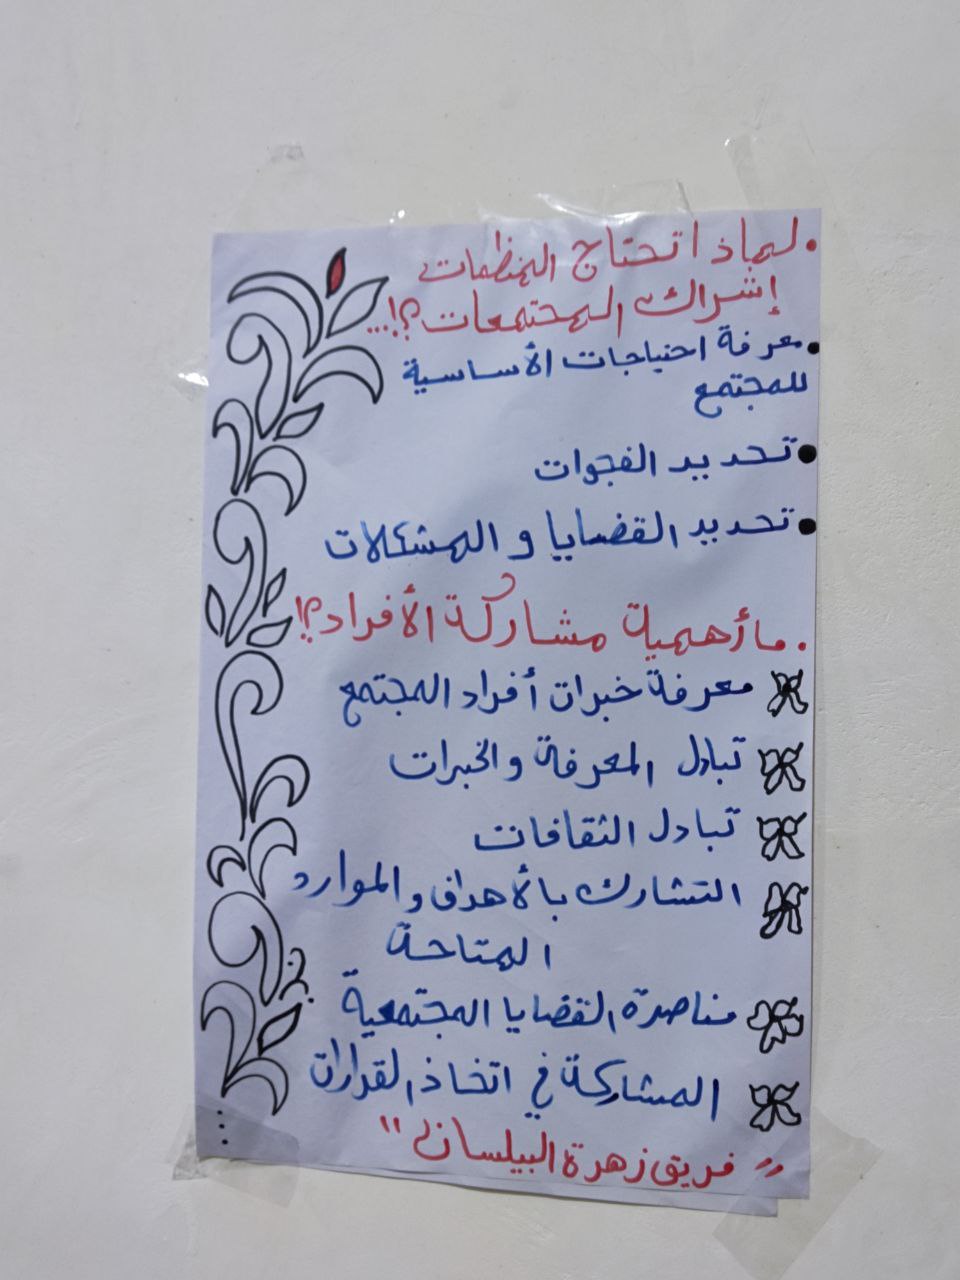 . لماذا تحتاج المنظمات
إشراك المجتمعات؟!...
• معرفة احتياجات الأساسية
للمجتمع
• تحديد الفجوات
• تحديد القضايا و المشكلات
. ما أهمية مشاركة الأفراد؟!
معرفة خبرات أفراد المجتمع
تبادل المعرفة والخبرات
تبادل الثقافات
التشارك بالأهداف والموارد
المتاحة
مناصرة القضايا المجتمعية
المشاركة في اتخاذ القرارات
" فريق زهرة البيلسان "